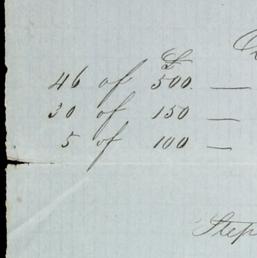 £
46 of 500. —
30 of 150 —
5 of 100 —
Step